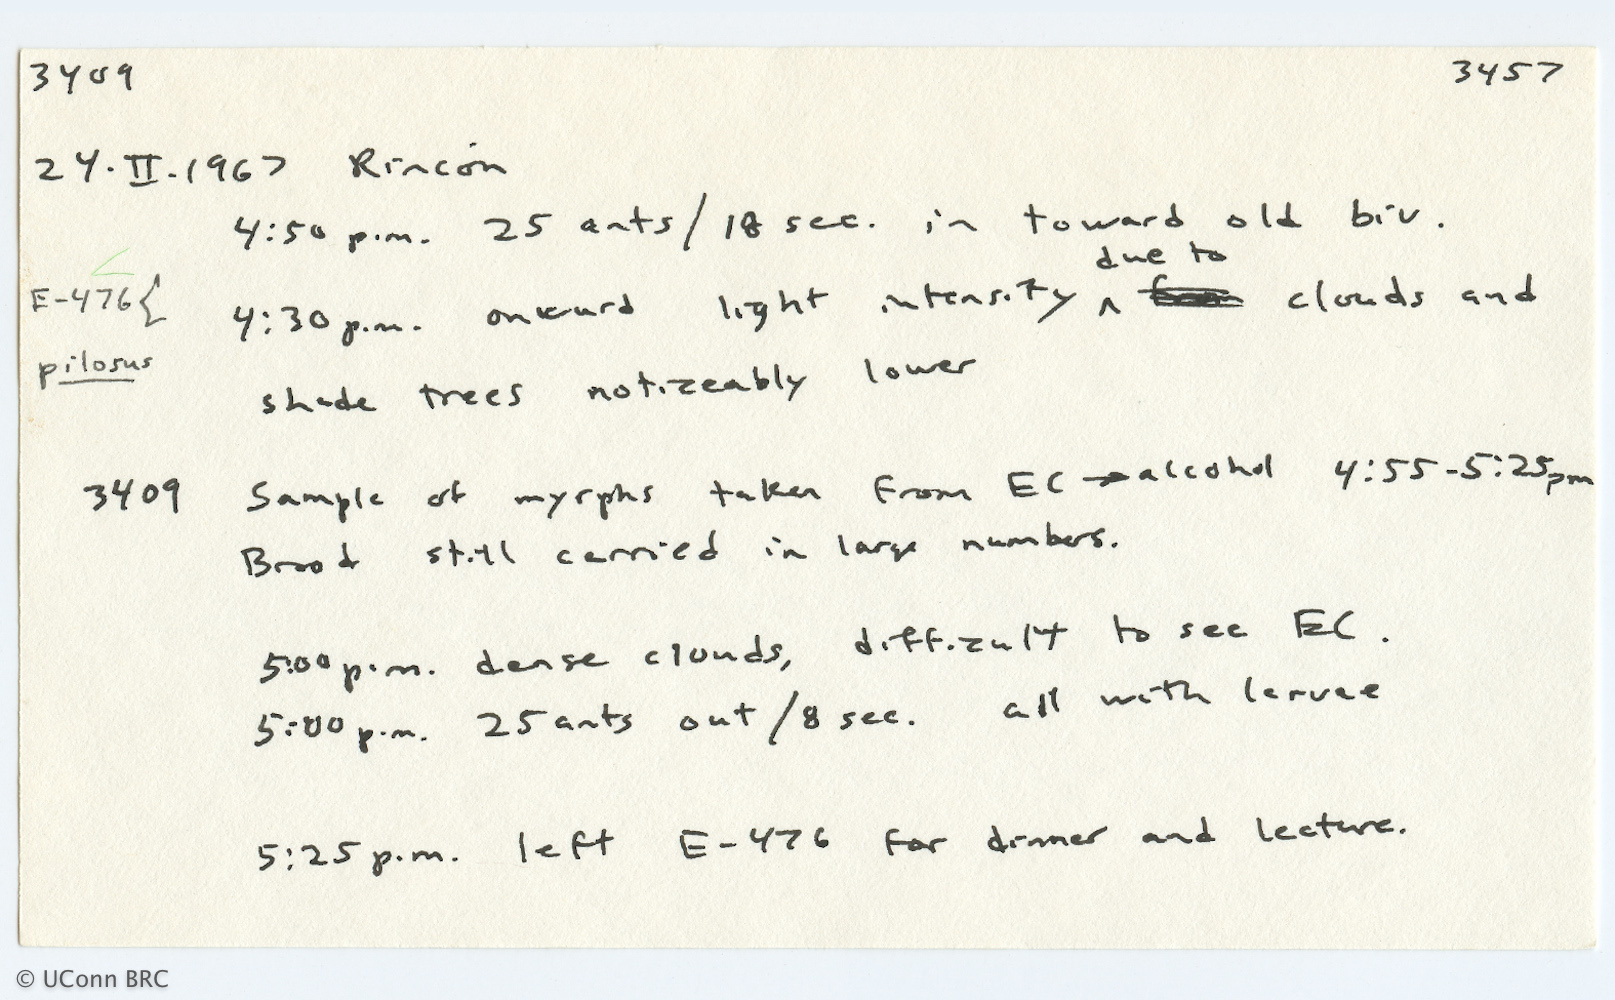 3409 3457
24.II.1967 Rincón
4:50 p.m. 25 ants/18 sec. in toward old biv.
due to
E-476{ 4:30 p.m. onward light intensity ^ clouds and
pilosus
shade trees noticeably lower
3409 Sample of myrphs taken from EC → alcohol 4:55-5:25pm
Brood still carried in large numbers.
5:00 p.m. dense clouds, difficult to see EC.
5:00 p.m. 25 ants out/8 sec. all with larvae
5:25 p.m. left E-476 for dinner and lecture.
© UConn BRC